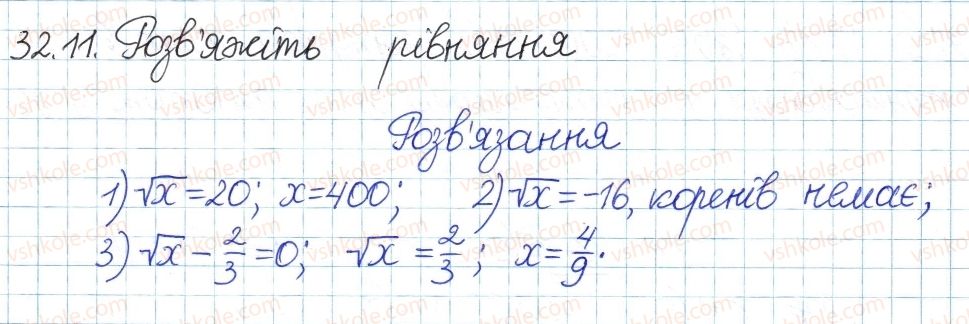 32.11. Розв'яжіть рівняння
Розв'язання
1) √x = 20; x = 400; 2) √x = -16, коренів немає;
3) √x - 2/3 = 0; √x = 2/3; x = 4/9.